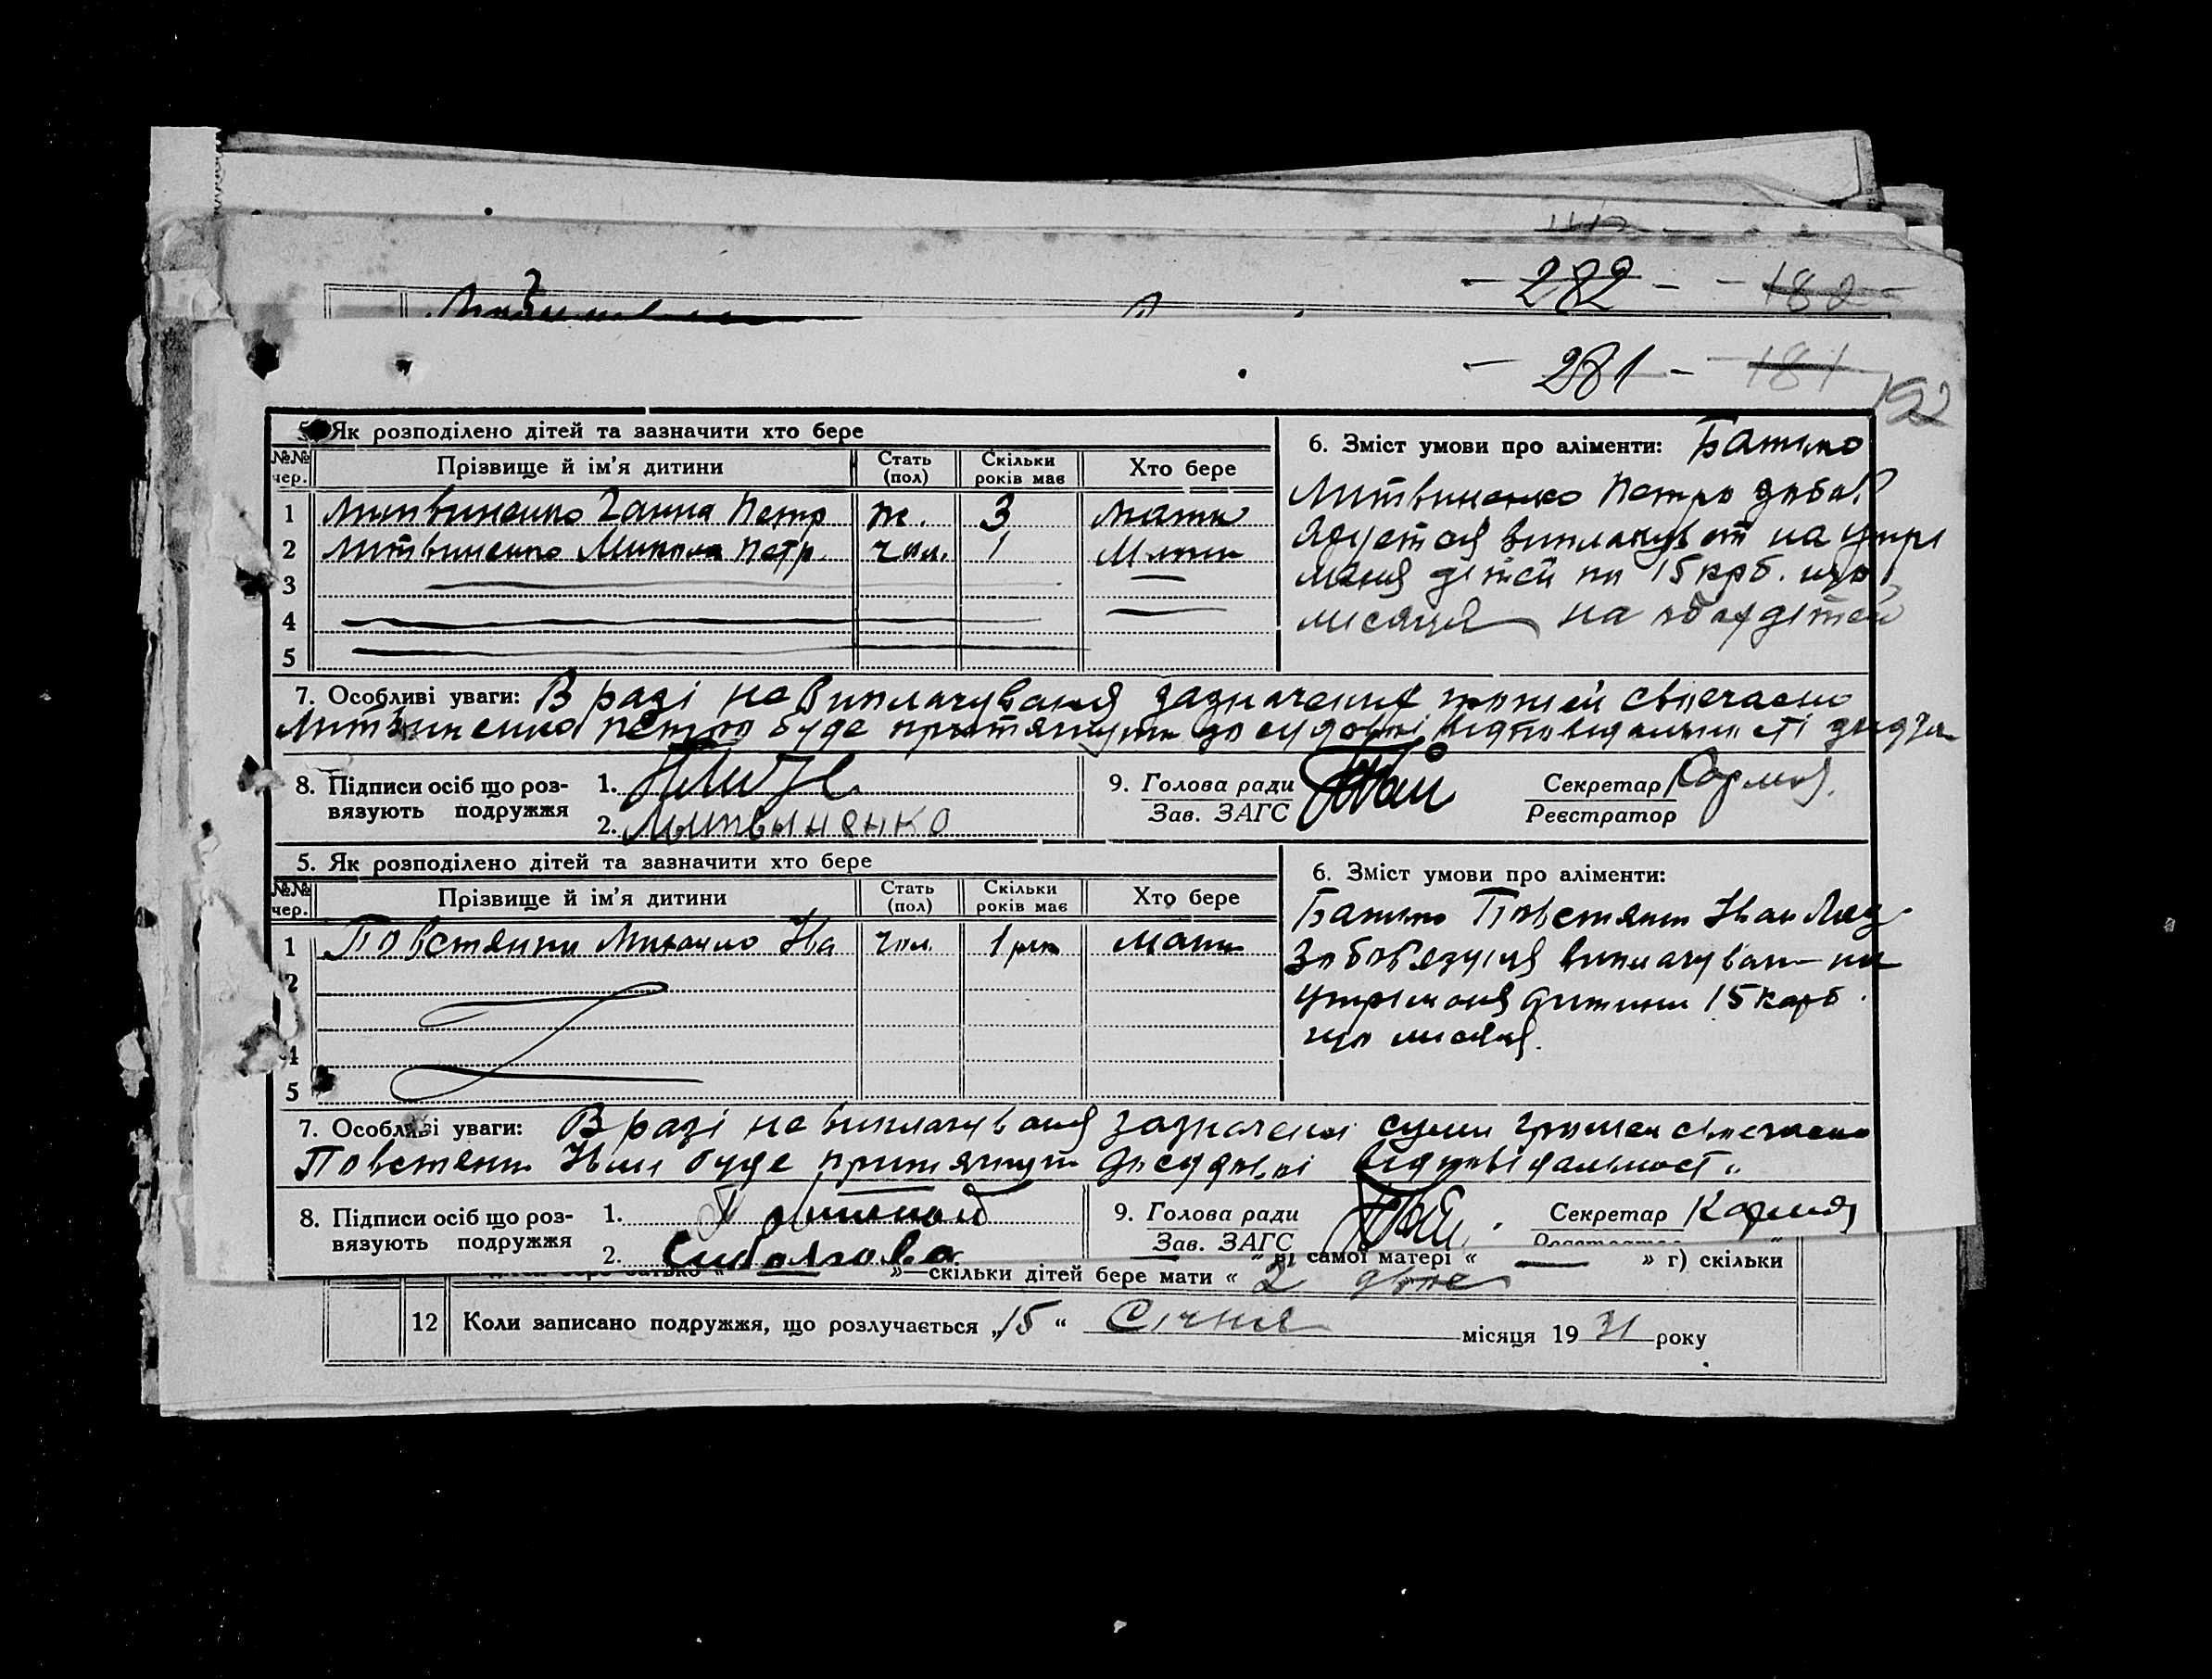 - 282 - - 182 -
- 281 - - 181
5. Як розподілено дітей та зазначити хто бере
№№ чер. Прізвище й ім'я дитини Стать (пол) Скільки років має Хто бере
1 Литвиненко Ганна Петр ж. 3 мати
2 Литвиненко Микола Петр. чол. 1 Мати
3
4
5
6. Зміст умови про аліменти: Батько
Литвиненко Петро зобов
язується виплачуват на утри
маня дітей по 15 крб. що
месяця на обох дітей
7. Особливі уваги: В разі не виплачуваня зазначених грошей своечасно
Литвиненко Петро буде притягнути до судової відповідальності
8. Підписи осіб що роз-
вязують подружжя
1.
2. Литвыненко
9. Голова ради
Зав. ЗАГС
Секретар
Реєстратор
5. Як розподілено дітей та зазначити хто бере
№№ чер. Прізвище й ім'я дитини Стать (пол) Скільки років має Хто бере
1 Повстянки Михайло Іва чол. 1 рік мати
2
4
5
6. Зміст умови про аліменти:
Батько Повстянит Іван
Зобов'язуїця виплачувати на
утриманя дитини 15 карб.
що місяця.
7. Особливі уваги: В разі не виплачуваня зазначеної суми грошей своечасно
Повстянит Іван буде притягнут до судової відповідальност.
8. Підписи осіб що роз-
вязують подружжя
1.
2.
9. Голова ради
Зав. ЗАГС
Секретар
самої матері « — » г) скільки
» скільки дітей бере мати « 2 двое
12 Коли записано подружжя, що розлучається „15 “ Січня місяця 19 31 року